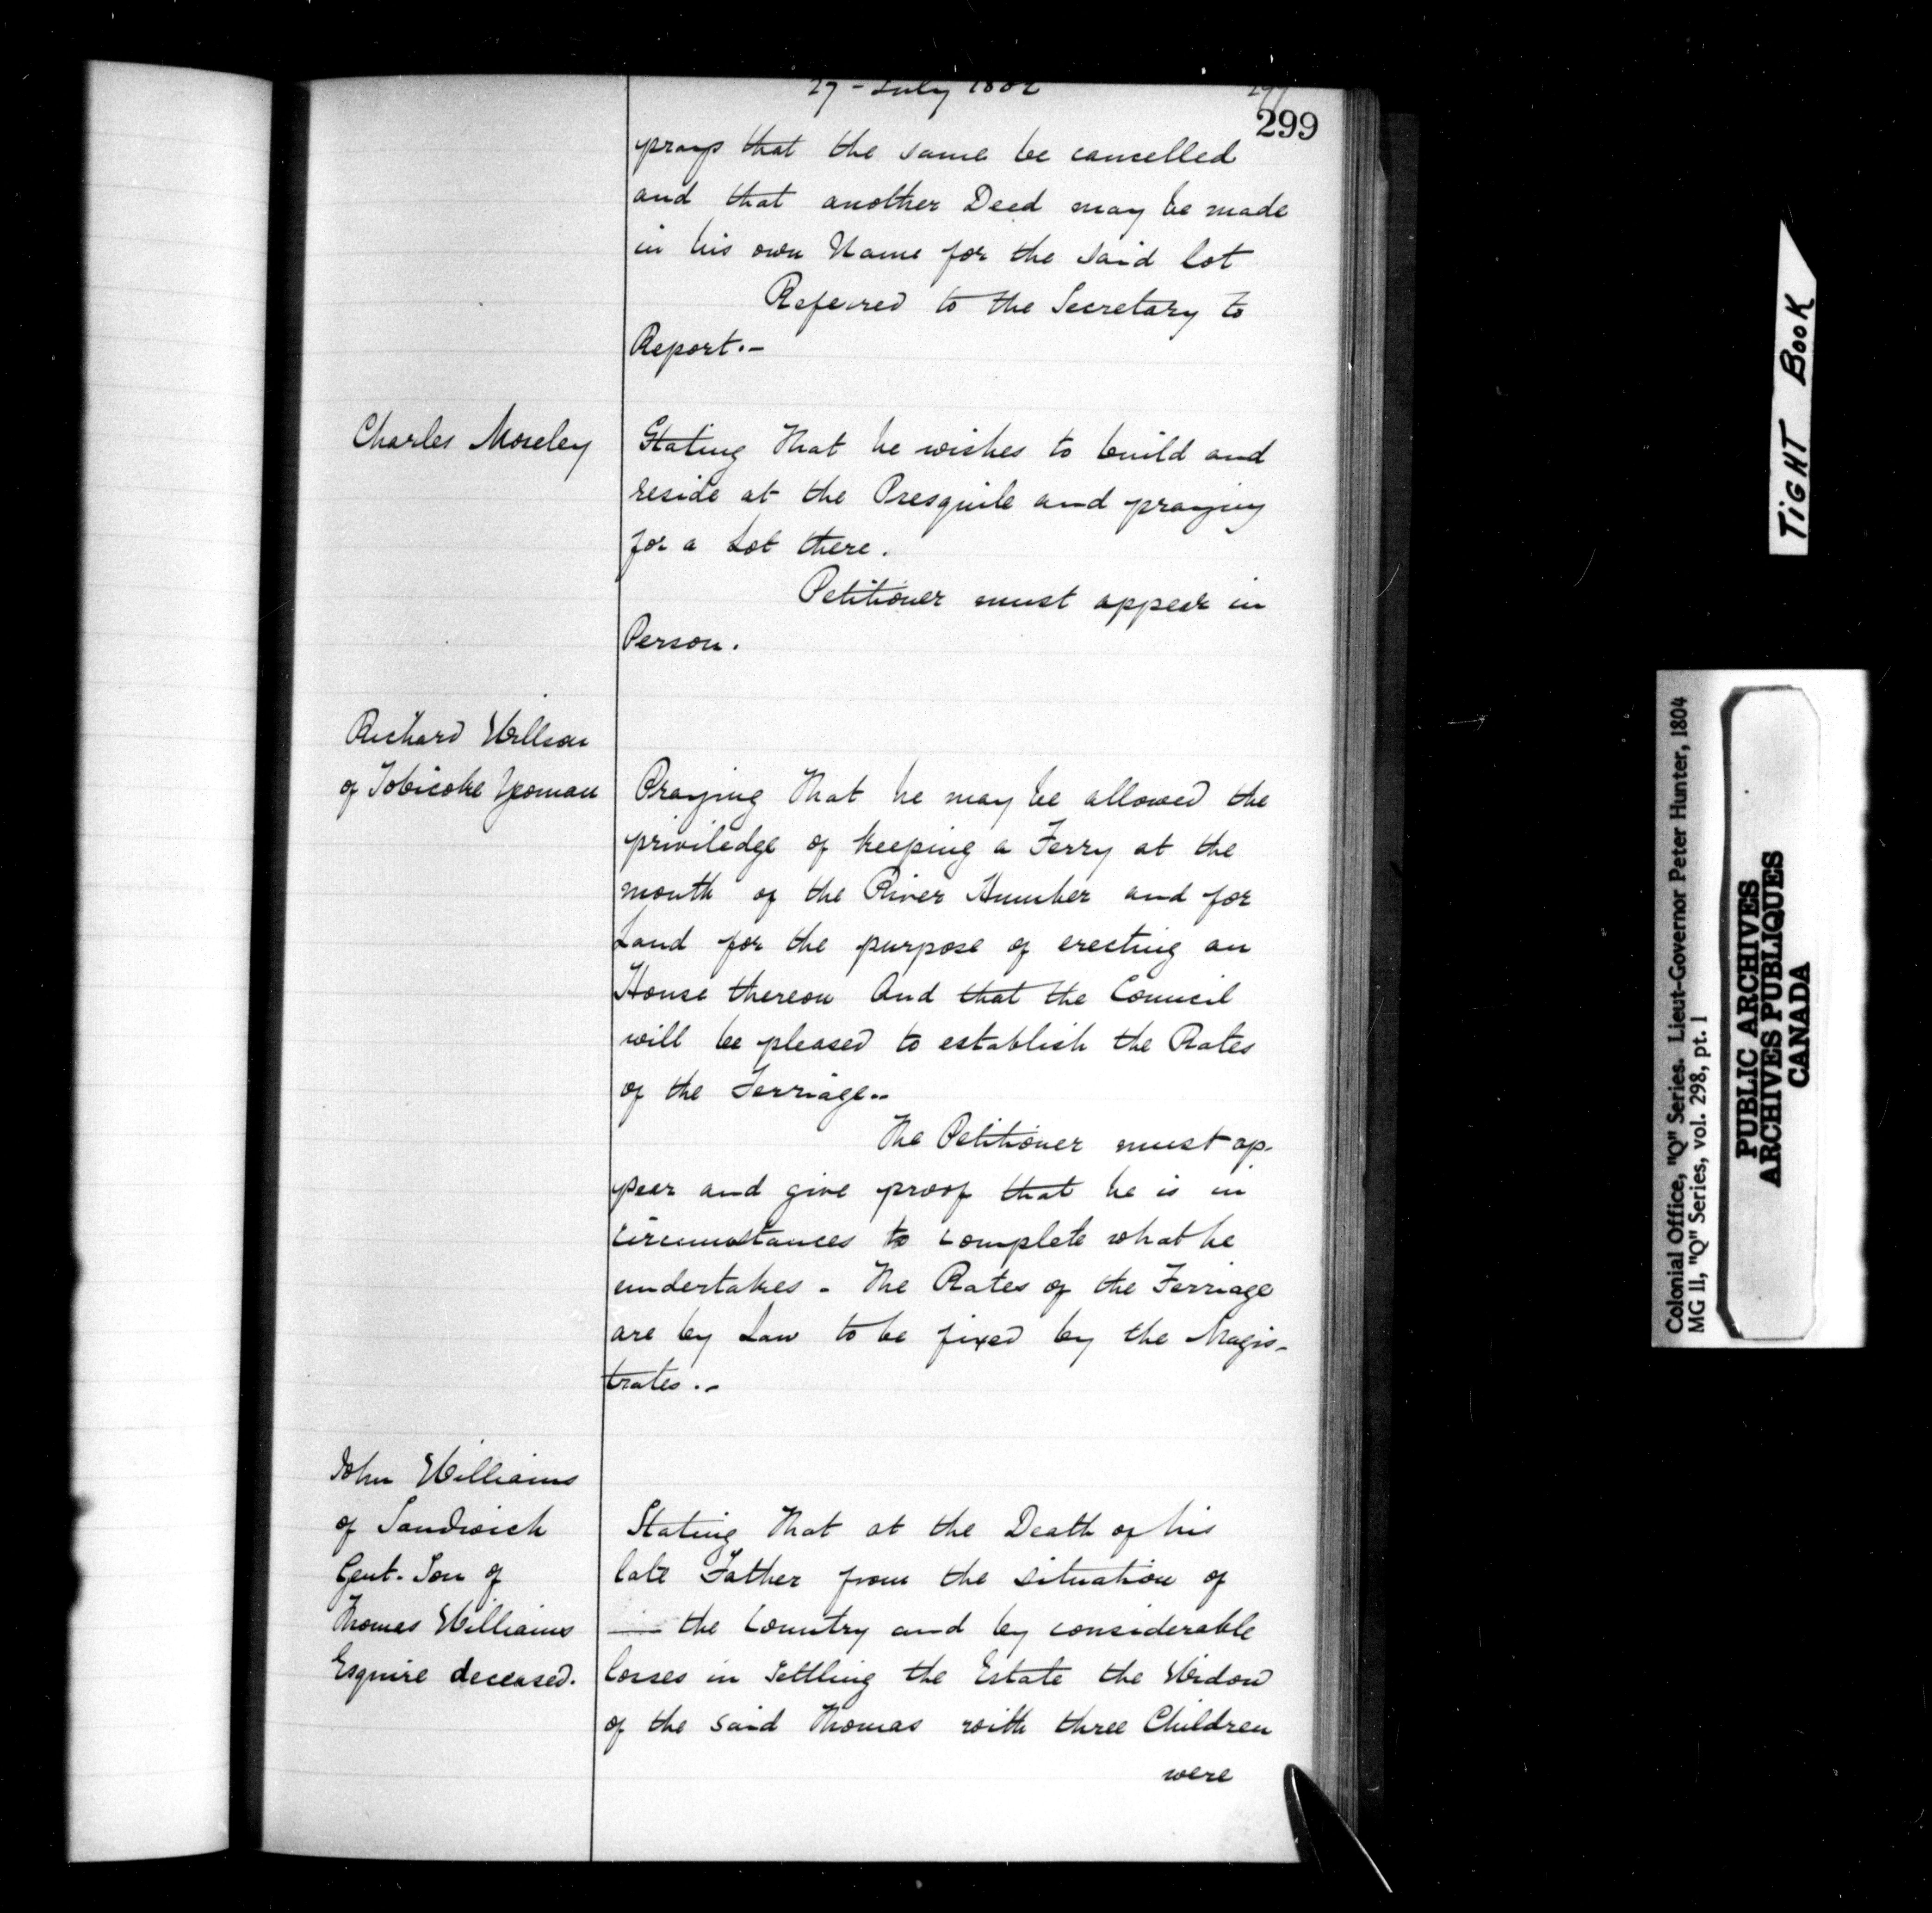 27 - July 1802
299
prays that the same be cancelled
and that another Deed may be made
in his own Name for the said lot
Referred to the Secretary to
Report.-
Charles Moseley
Stating That he wishes to build and
reside at the Presquile and praying
for a Lot there.
Petitioner must appear in
Person.
Richard Willson
of Tobicoke Yeoman
Praying That he may be allowed the
priviledge of keeping a Ferry at the
mouth of the River Humber and for
Land for the purpose of erecting an
House thereon And that the Council
will be pleased to establish the Rates
of the Ferriage..
The Petitioner must ap-
pear and give proof that he is in
circumstances to complete what he
undertakes - The Rates of the Ferriage
are by Law to be fixed by the Magis-
trates.-
John Williams
of Sandwich
Gent. Son of
Thomas Williams
Esquire deceased.
Stating That at the Death of his
late Father from the situation of
the Country and by considerable
losses in Settling the Estate the Widow
of the said Thomas with three Children
were
TIGHT BOOK
Colonial Office, "Q" Series. Lieut-Governor Peter Hunter, 1804
MG 11, "Q" Series, vol. 298, pt. 1
PUBLIC ARCHIVES
ARCHIVES PUBLIQUES
CANADA